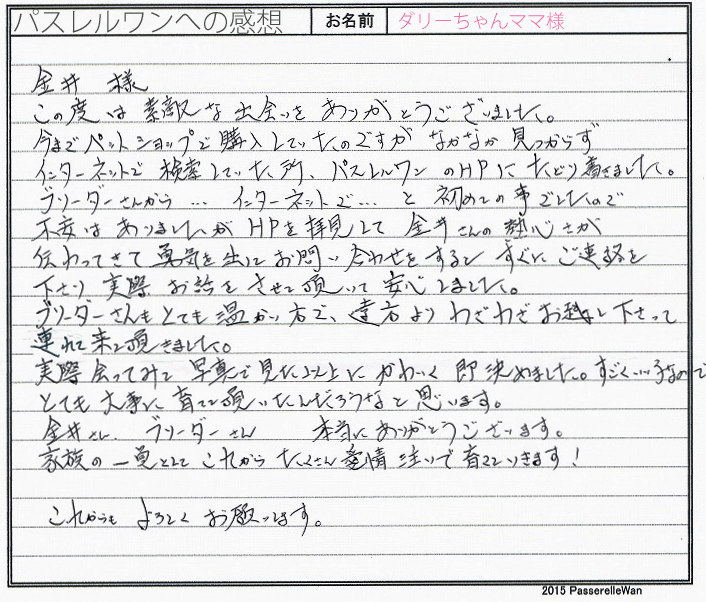 パスレルワンへの感想 お名前 ダリーちゃんママ様
金井 様
この度は 素敵な 出会いを ありがとうございました。
今までペットショップで購入していたのですが なかなか 見つからず
インターネットで 検索していた所、パスレルワンのHPに たどり着きました。
ブリーダーさんから … インターネットで … と 初めての事でしたので
不安は ありましたが HPを拝見して 金井さんの 熱心さが
伝わってきて 勇気を出して お問い合わせをすると すぐに ご連絡を
下さり 実際 お話を させて頂いて 安心しました。
ブリーダーさんも とても 温かい方で、遠方より わざわざ お越し下さって
連れて来て頂きました。
実際 会ってみて 写真で見た以上に かわいく 即決めました。すごくいい子なので
とても 大事に 育てて頂いたんだろうなと思います。
金井さん、 ブリーダーさん 本当に ありがとうございます。
家族の一員として これから たくさん 愛情 注いで 育てていきます!
これからも よろしく お願いします。
2015 PasserelleWan